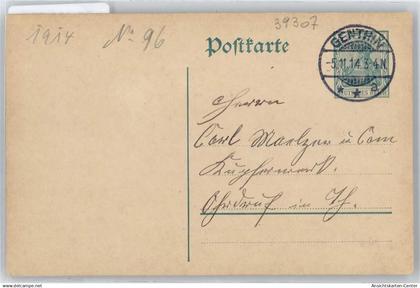 39307
1914 No 96
Postkarte
GENTHIN
-5.11.14.3-4N.
* * a
Herrn
Carl Maelzer u Com
Kupferwerk.
Ohrdruf in Th.
Ansichtskarten-Center